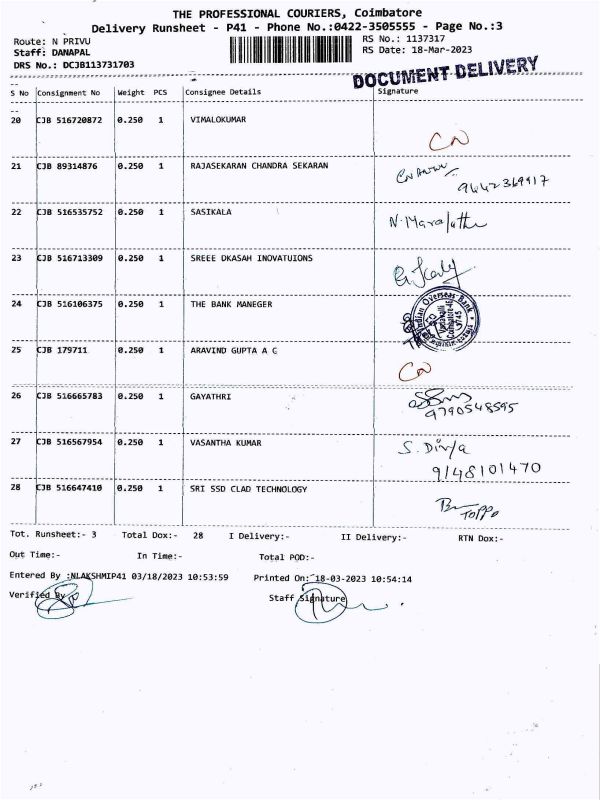 THE PROFESSIONAL COURIERS, Coimbatore
Delivery Runsheet - P41 - Phone No.:0422-3505555 - Page No.:3
Route: N PRIVU
RS No.: 1137317
Staff: DANAPAL
RS Date: 18-Mar-2023
DRS No.: DCJB113731703
DOCUMENT DELIVERY
S No Consignment No Weight PCS Consignee Details Signature
20 CJB 516720872 0.250 1 VIMALOKUMAR
CN
21 CJB 89314876 0.250 1 RAJASEKARAN CHANDRA SEKARAN
9442369917
22 CJB 516535752 0.250 1 SASIKALA
23 CJB 516713309 0.250 1 SREEE DKASAH INOVATUIONS
24 CJB 516106375 0.250 1 THE BANK MANEGER
Indian Overseas Bank
25 CJB 179711 0.250 1 ARAVIND GUPTA A G
CN
26 CJB 516665783 0.250 1 GAYATHRI
9790548595
27 CJB 516567954 0.250 1 VASANTHA KUMAR
S. Divya
9148101470
28 CJB 516647410 0.250 1 SRI SSD CLAD TECHNOLOGY
Toppo
Tot. Runsheet:- 3 Total Dox:- 28 I Delivery:- II Delivery:- RTN Dox:-
Out Time:- In Time:- Total POD:-
Entered By :NLAKSHMIP41 03/18/2023 10:53:59 Printed On: 18-03-2023 10:54:14
Verified By Staff Signature